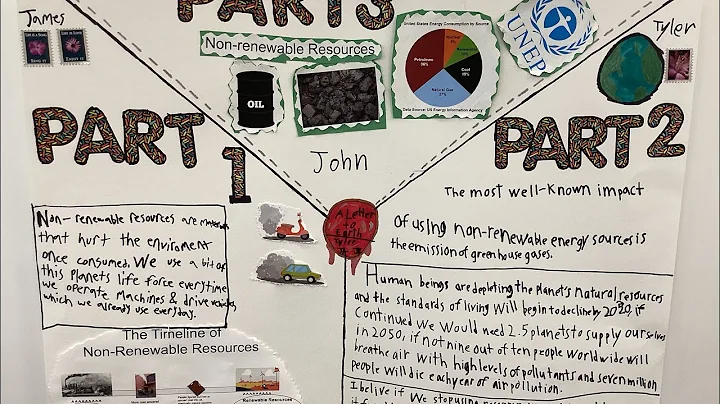 James
PART3
Tyler
Non-renewable Resources
OIL
United States Energy Consumption by Source
Nuclear
Renewable
Petroleum
Coal
Natural Gas
Data Source: US Energy Information Agency
UNEP
PART 1
PART 2
John
A Letter
to
Earth
Non-renewable resources are materials
that hurt the enviroment
once consumed. We use a bit of
this Planets life force everytime
we operate Machines & drive vehicles,
which we already use everyday.
The Timeline of
Non-Renewable Resources
Renewable Resources
The most well-known impact
Of using non-renewable energy sources is
the emission of green house gases.
Human beings are depleting the Planet's natural resources
and the standards of living will begin to decline by if
Continued We Would need 2.5 planets to supply ourselves
in 2050, if not nine out of ten people worldwide will
breathe air with high levels of pollutants and seven million
People will die each year of air pollution.
I belive if We stop using